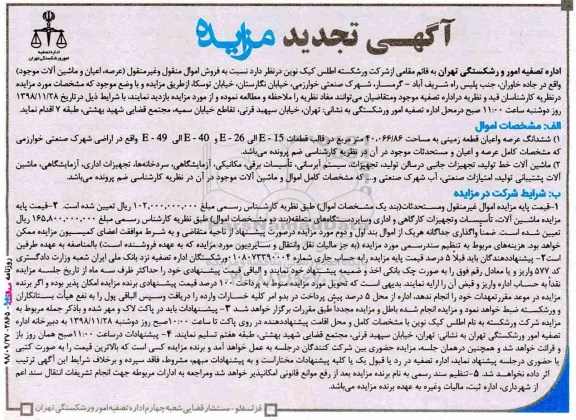 آگهی تجدید مزایده
اداره تصفیه
امور ورشکستگی تهران
اداره تصفیه امور و رشکستگی تهران به قائم مقامی ازشرکت ورشکسته اطلس کیک نوین درنظر دارد نسبت به فروش اموال منقول وغیرمنقول (عرصه، اعیان و ماشین آلات موجود)
واقع در جاده خاوران، جنب پلیس راه شریف آباد – گرمسار، شهرک صنعتی خوارزمی، خیابان نگارستان، خیابان توسکا، ازطریق مزایده و با وضع موجود که مشخصات مورد مزایده
درنظریه کارشناسان قید و نظریه دراداره تصفیه موجود ومتقاضیان می‌توانند مفاد نظریه را ملاحظه و مطالعه نموده و از مورد مزایده بازدید نمایند، با شرایط ذیل درتاریخ ۱۳۹۸/۱۱/۲۸
روز دوشنبه ساعت ۱۱:۰۰ صبح درمحل اداره تصفیه امور ورشکستگی به نشانی: تهران، خیابان سپهبد قرنی، تقاطع خیابان سمیه، مجتمع قضایی شهید بهشتی، طبقه ۷ اقدام نماید.
الف: مشخصات اموال
۱) ششدانگ عرصه واعیان قطعه زمینی به مساحت ۴۰،۰۶۶/۸۶ متر مربع در قالب قطعات E - 15 الی E - 26 و E - 40 الی E - 49 واقع در اراضی شهرک صنعتی خوارزمی
که مشخصات کامل عرصه و اعیان و مستحدثات موجود در آن در نظریه کارشناسی ضم پرونده می‌باشد.
۲) ماشین آلات خط تولید، تجهیزات جانبی درسالن تولید، تجهیزات، سیستم آبرسانی، تأسیسات برقی، مکانیکی، آزمایشگاهی، سردخانه‌ها، تجهیزات اداری، آزمایشگاهی، ماشین
آلات پشتیبانی تولید، امتیازات صنعتی، آب شهرک صنعتی و... که مشخصات کامل اموال و ماشین آلات موجود در آن در نظریه کارشناسی ضم پرونده می‌باشد.
ب: شرایط شرکت در مزایده
۱-قیمت پایه مزایده اموال غیرمنقول ومستحدثات(بند یک مشخصات اموال) طبق نظریه کارشناس رسمی مبلغ ۱۰۲،۰۰۰،۰۰۰،۰۰۰ ریال تعیین شده است. ۲-قیمت پایه
مزایده ماشین آلات، تأسیسات وتجهیزات کارگاهی و اداری وسایردستگاه‌های متعلقه(بند دو مشخصات اموال) طبق نظریه کارشناس رسمی مبلغ ۱۶۵،۸۰۰،۰۰۰،۰۰۰ ریال
تعیین شده است. ضمناً واگذاری جداگانه هریک از اموال بند اول و دوم مورد درخواست از ناحیه متقاضی و به شرط موافقت اعضای کمیسیون مزایده ممکن
خواهد بود. هزینه‌های مربوط به تنظیم سندرسمی مورد مزایده (به جز مالیات نقل وانتقال و سایردیون مورد مزایده که به عهده فروشنده است) بالمناصفه به عهده طرفین
است۲- پیشنهاددهندگان باید قبلاً ۵ درصد قیمت پایه مزایده رابه حساب جاری شماره ۱۰۸۰۷۳۳۹۰۱۰۰۴ ورشکستگان اداره تصفیه نزد بانک ملی ایران شعبه وزارت دادگستری
کد ۵۷۷ واریز و یا معادل رقم فوق را به صورت چک بانکی اخذ و ضمیمه پیشنهادخود به اداره تصفیه تسلیم نمایند و الباقی قیمت پیشنهادی خود را حداکثر ظرف سه ماه از تاریخ جلسه مزایده
نقداً به حساب اداره واریز و قبض آن را ارایه نمایند. بدیهی است که تحویل مورد مزایده منوط به پرداخت ۱۰۰ درصد قیمت پیشنهادی برنده مزایده امکان پذیر بوده و اگر برنده
مزایده در موعد مقررتعهدات خود را انجام ندهد، اداره از محل ۵ درصد پیش پرداخت در بدو امر کلیه خسارات وارده را دریافت وسپس الباقی پول را به نفع هیأت بستانکاران
و ورشکسته ضبط خواهد نمود و مزایده انجام شده باطل و مزایده مجدداً طبق مقررات برگزار خواهد شد. ۳- پیشنهادات باید در پاکت لاک و مهر شده و باذکر جمله مربوط به
مزایده شرکت ورشکسته به نام اطلس کیک نوین با مشخصات کامل و محل اقامت پیشنهاددهنده در روی پاکت تا ساعت ۱۰:۰۰صبح روز دوشنبه ۱۳۹۸/۱۱/۲۸ به دبیرخانه اداره
تصفیه امور ورشکستگی تهران به نشانی: تهران، خیابان سپهبد قرنی، مجتمع قضایی شهید بهشتی، طبقه هفتم تسلیم نمایند. ۴- پیشنهادات درساعت ۱۱:۰۰صبح همان روز باز
و قرائت خواهد شد و همچنین درهمان جلسه، مزایده حضوری بین شرکت کنندگان درجلسه به عمل خواهد آمد و برنده مزایده کسی است که بالاترین قیمت را به صورت کتبی
یا حضوری درجلسه پیشنهاد نماید، اداره تصفیه در رد یا قبول یک یا کلیه پیشنهادات مختاراست و به پیشنهادات مبهم، مشروط، فاقد سپرده و برخلاف شرایط این آگهی ترتیب
اثر داده نخواهد شد. ۵-تنظیم سند رسمی به نام برنده مزایده بعد از رفع موانع قانونی امکانپذیر خواهد شد ومراجعه به ادارات مربوطه جهت انجام تشریفات انتقال سند اعم
از شهرداری، اداره ثبت، مالیات وغیره به عهده برنده مزایده می‌باشد.
قزلسفلو - مستشار قضایی شعبه چهارم اداره تصفیه امور ورشکستگی تهران